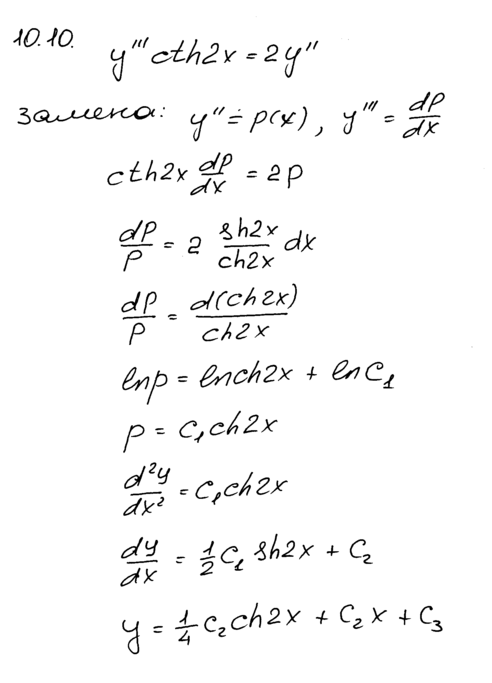 10.10. y''' cth2x = 2y''
замена: y'' = p(x), y''' = dp/dx
cth2x dp/dx = 2p
dp/p = 2 sh2x/ch2x dx
dp/p = d(ch2x)/ch2x
lnp = lnch2x + lnC₁
p = C₁ch2x
d²y/dx² = C₁ch2x
dy/dx = 1/2 C₁ sh2x + C₂
y = 1/4 C₂ch2x + C₂x + C₃